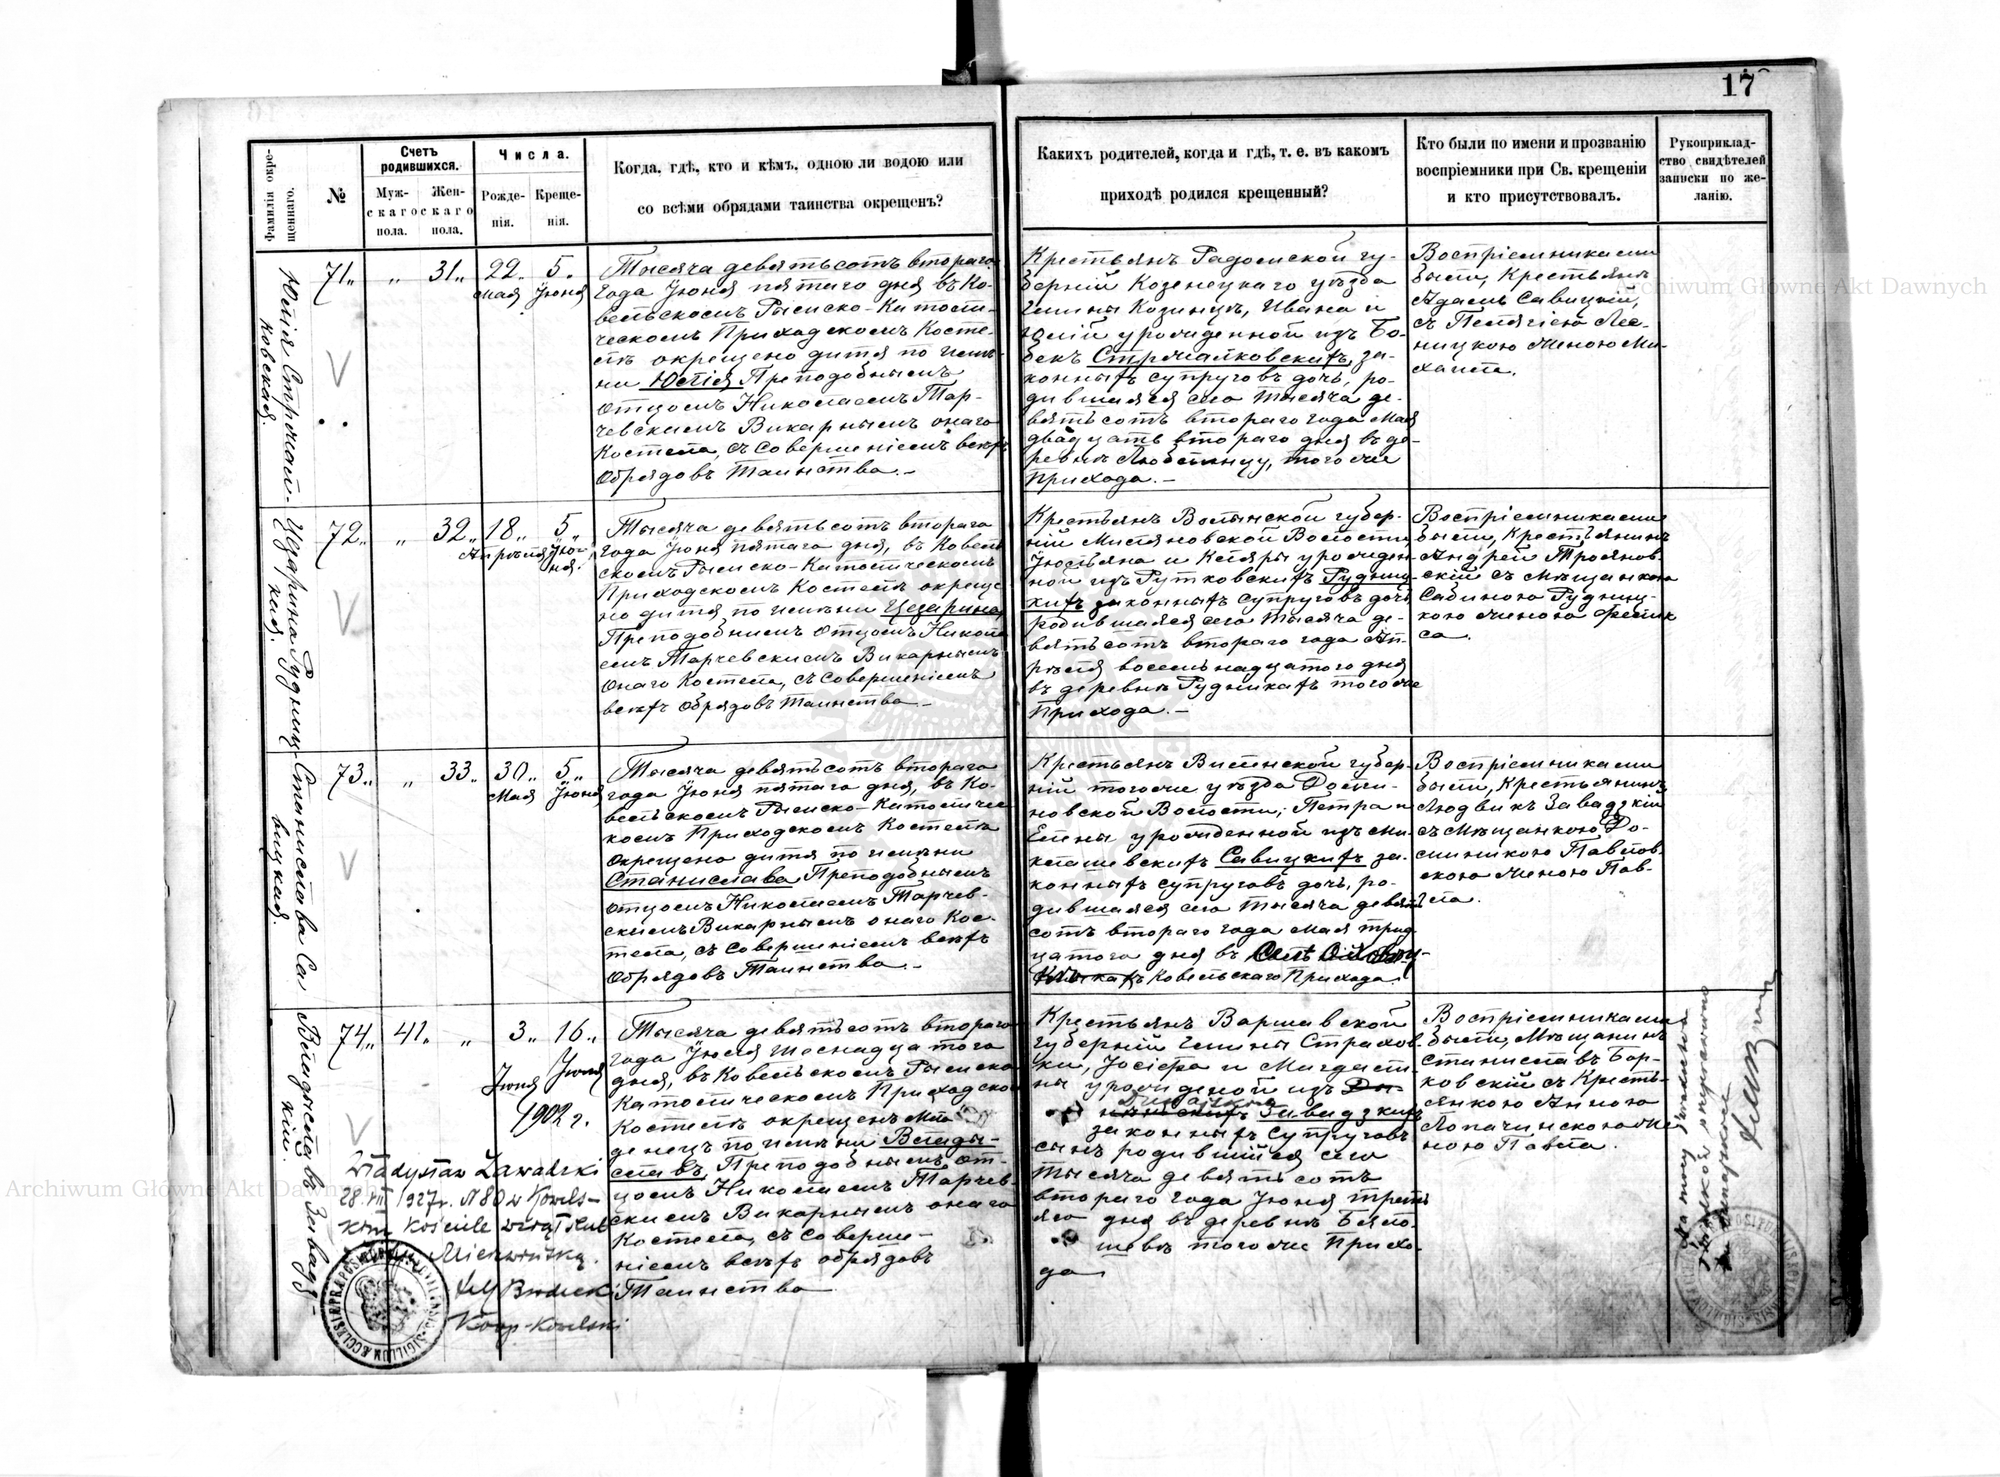 17
Фамилія окре-
щеннаго.
№
Счетъ
родившихся.
Муж-
скаго
пола.
Жен-
скаго
пола.
Числа.
Рожде-
нія.
Креще-
нія.
Когда, гдѣ, кто и кѣмъ, одною ли водою или
со всѣми обрядами таинства окрещенъ?
Какихъ родителей, когда и гдѣ, т. е. въ какомъ
приходѣ родился крещенный?
Кто были по имени и прозванію
воспріемники при Св. крещеніи
и кто присутствовалъ.
Рукоприклад-
ство свидѣтелей
записки по же-
ланію.
Юлія Стржалп-
ковская.
71.
"
31.
22.
Мая
5.
Іюня
Тысяча девятьсотъ втораго
года Іюня пятаго дня въ Ко-
вельскомъ Римско-Католи-
ческомъ Приходскомъ Косте-
лѣ окрещено дитя по имѣ-
ни Юлія Преподобнымъ
Отцомъ Николаемъ Тар-
чевскимъ Викарнымъ онаго
Костела, съ совершеніемъ всѣхъ
Обрядовъ Таинства.-
Крестьянъ Радомской гу-
берніи Козенецкаго уѣзда
Гмины Козинцъ, Ивана и
Юліи урожденной изъ Бо-
бекъ Стржалковскихъ, за-
конныхъ супруговъ дочь, ро-
дившаяся сего тысяча де-
вятьсотъ втораго года Мая
двадцать втораго дня въ де-
ревнѣ Любтинцу, того же
Прихода.-
Воспріемниками
были, Крестьянъ
Адамъ Савицкій,
съ Пелагіею Лес-
ницкою женою Ми-
хаила.
Цезарина Рудниц-
кая.
72.
"
32.
18.
Апрѣля
5.
Іюня.
Тысяча девятьсотъ втораго
года Іюня пятаго дня, въ Ковель
скомъ Римско-Католическомъ
Приходскомъ Костелѣ окреще
но дитя по имѣни Цезарина
Преподобнымъ Отцомъ Никола
емъ Тарчевскимъ Викарнымъ
Онаго Костела, съ совершеніемъ
всѣхъ Обрядовъ Таинства.-
Крестьянъ Волынской губер-
ніи Миляновской Волости
Іульяна и Кляры урожден
ной изъ Рутковскихъ Рудниц
кихъ законныхъ супруговъ дочь
родившаяся сего тысяча де-
вятьсотъ втораго года Ап-
рѣля восемьнадцатого дня
въ деревнѣ Рудникахъ того же
Прихода.-
Воспріемниками
были, Крестьянинъ
Андрей Трояновъ-
скій съ Мѣщанкою
Сабиною Рудниц-
кою женою Феликъ
са.
Станислава Са-
вицкая.
73.
"
33.
30.
Мая
5.
Іюня
Тысяча девятьсотъ втораго
года Іюня пятаго дня, въ Ко-
вельскомъ Римско-Католичес
комъ Приходскомъ Костелѣ
Окрещено дитя по имѣни
Станислава Преподобнымъ
Отцомъ Николаемъ Тарчев-
скимъ Викарнымъ онаго Кос-
тела, съ совершеніемъ всѣхъ
Обрядовъ Таинства.-
Крестьянъ Виленской губер-
ніи того же уѣзда
новской Волости, Петра и
Елены урожденной изъ Ми-
клашевскихъ Савицкихъ за-
конныхъ супруговъ дочь, ро-
дившаяся сего тысяча девять
сотъ втораго года Мая трид
цатого дня въ
Ковельскаго Прихода.
Воспріемниками
были, Крестьянинъ
Людвикъ Завадзкій
съ Мѣщанкою До-
миникою Павлов-
скою женою Пав-
ла.
Владыславъ Завадз-
кій.
74.
41.
"
3.
Іюня
16.
Іюня
1902 г.
Тысяча девятьсотъ втораго
года Іюня шеснадцатого
дня, въ Ковельскомъ Римско
Католическомъ Приходском
Костелѣ окрещенъ Мла
денецъ по имѣни Влады-
славъ, Преподобнымъ От-
цомъ Николаемъ Тарчев-
скимъ Викарнымъ онаго
Костела, съ соверше-
ніемъ всѣхъ обрядовъ
Таинства
Крестьянъ Варшавской
губерніи Гмины Страхов
ки, Іосифа и Магдали-
ны урожденой изъ
Завадзкихъ
законныхъ супруговъ
сынъ родившійся сего
Тысяча девятьсотъ
втораго года Іюня треть
яго дня въ деревнѣ Бѣло-
шевѣ того же Прихо-
да
Воспріемниками
были, Мѣщанинъ
Станиславъ Бор-
ковскій съ Кресть-
янкою Анною
Лопачинскою же-
ною Павла.
Władysław Zawadzki
28.VIII 1927r. N 80 w Kowels-
kim kościele wziął ślub
Archiwum Główne Akt Dawnych
Archiwum Główne Akt Dawnych